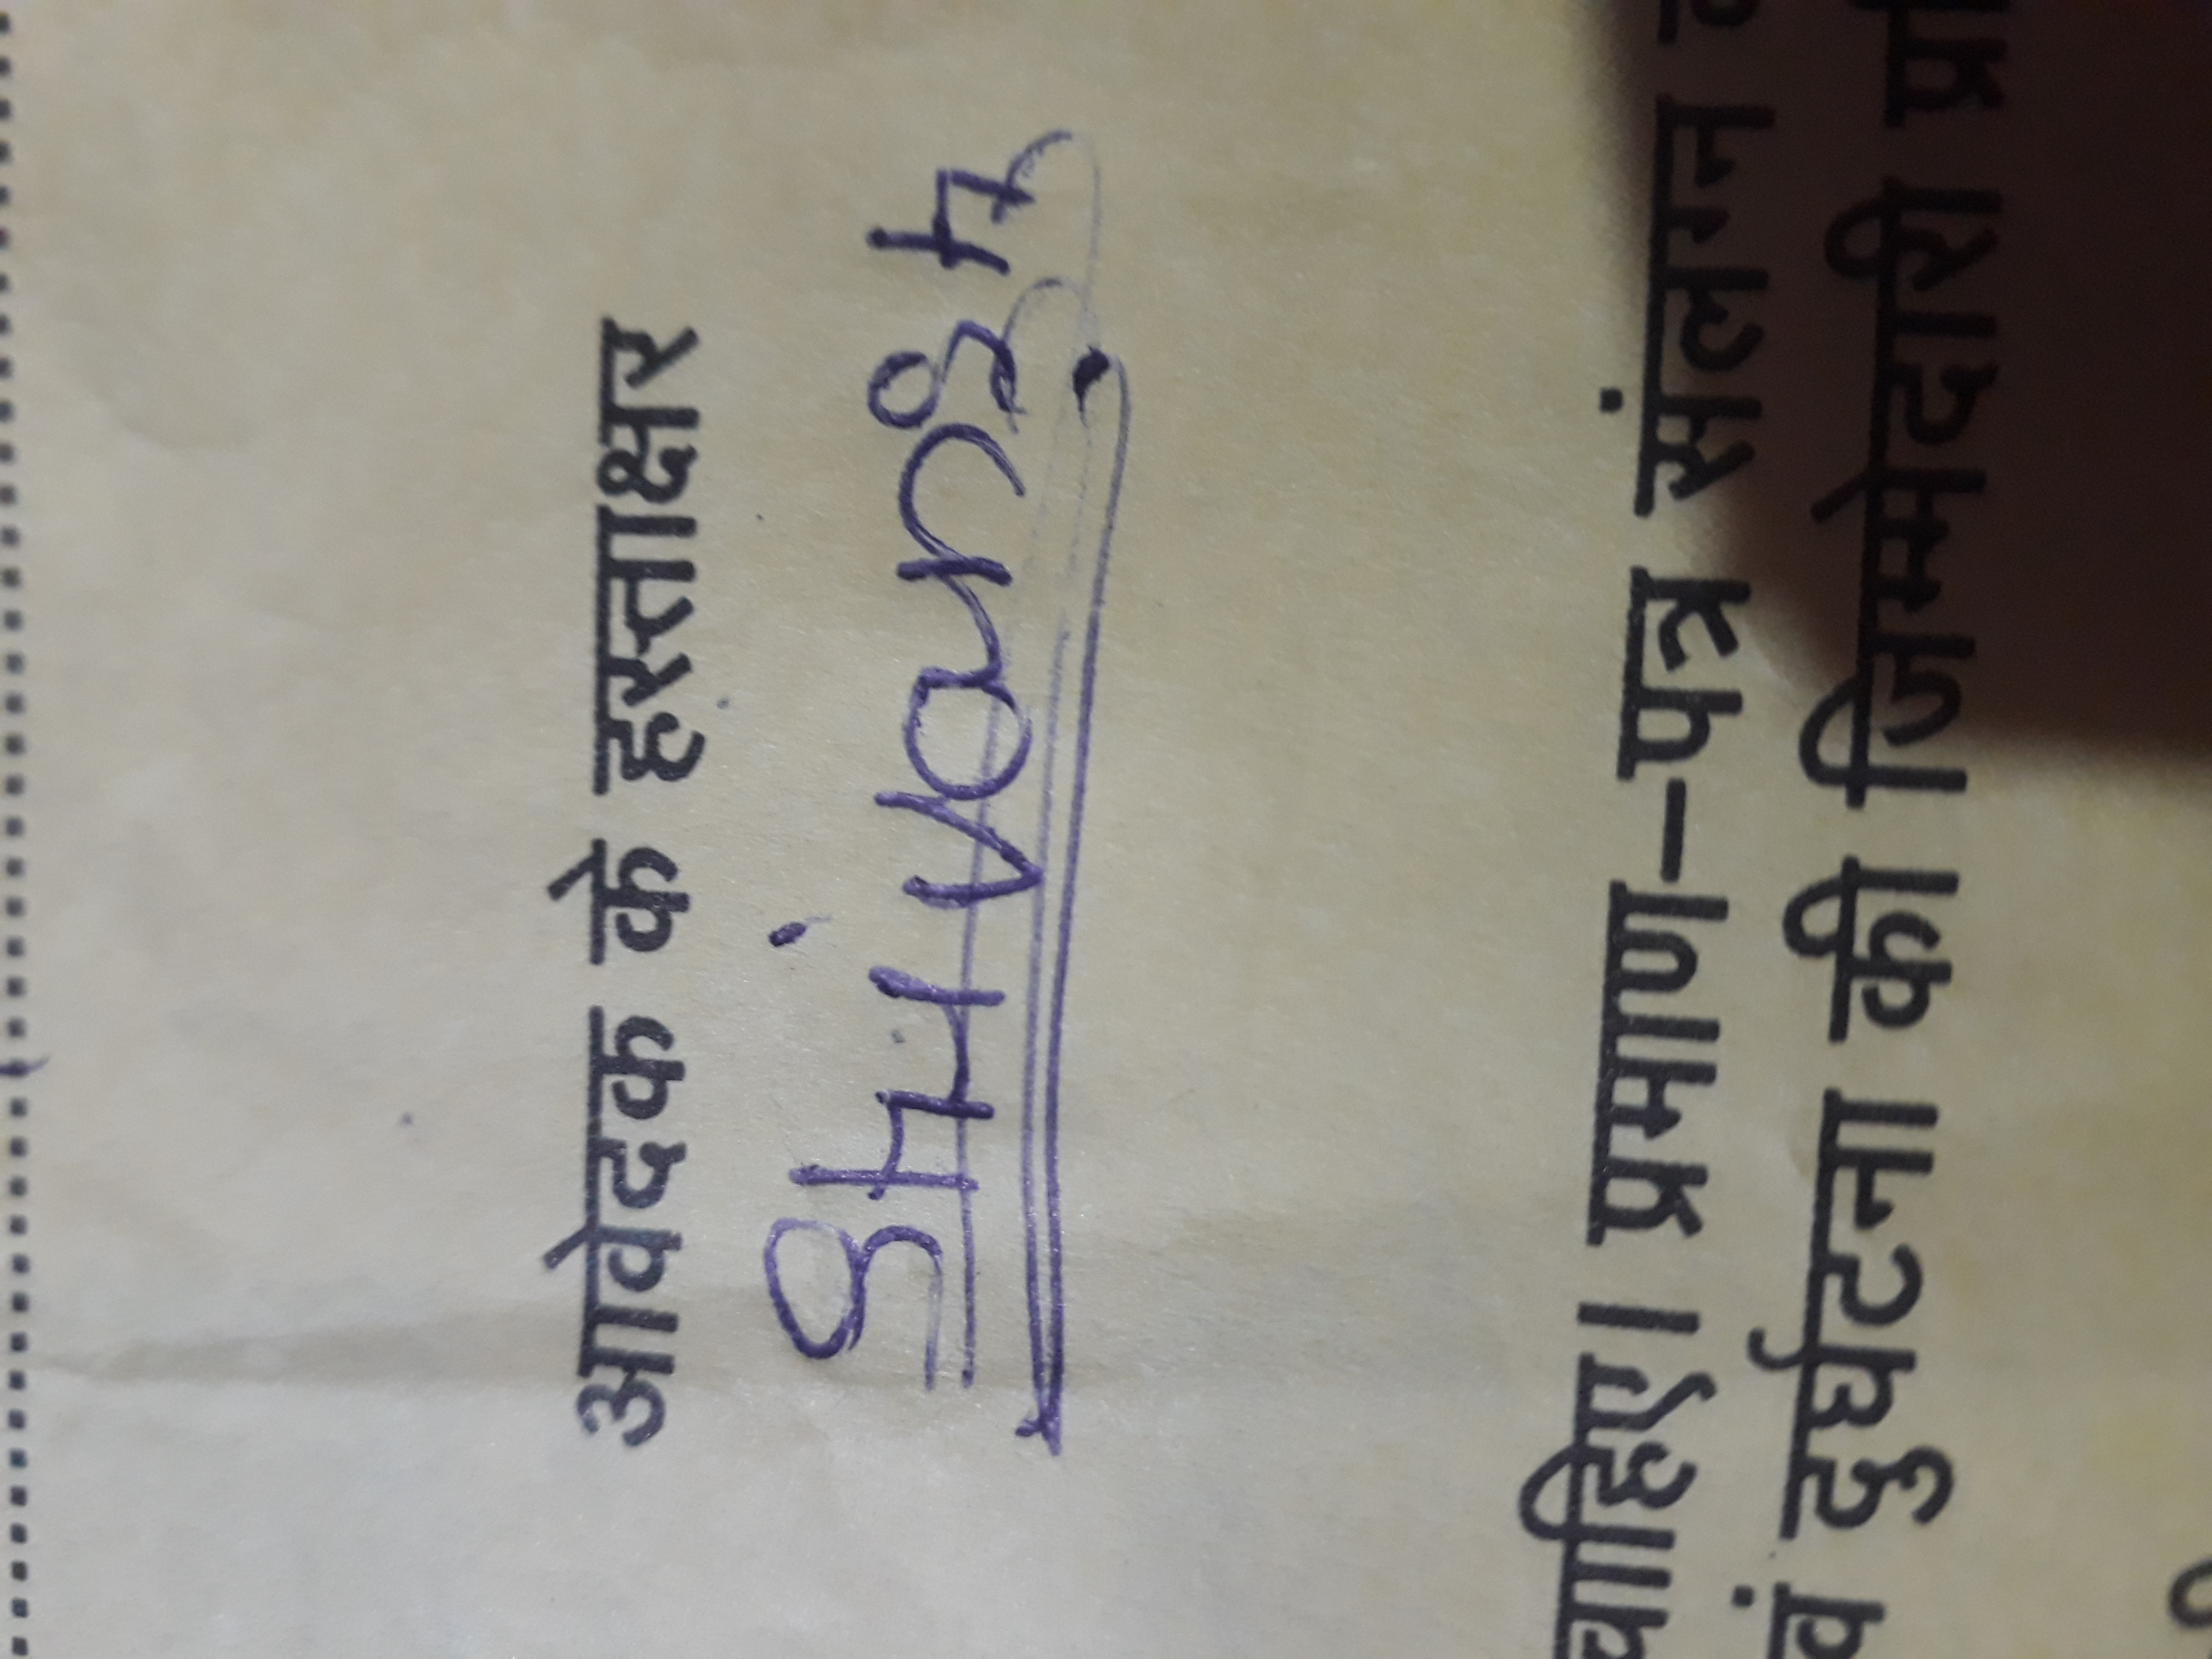 आवेदक के हस्ताक्षर
Shivansh
चाहिए। प्रमाण–पत्र संलग्न
वं दुर्घटना की जिम्मेदारी